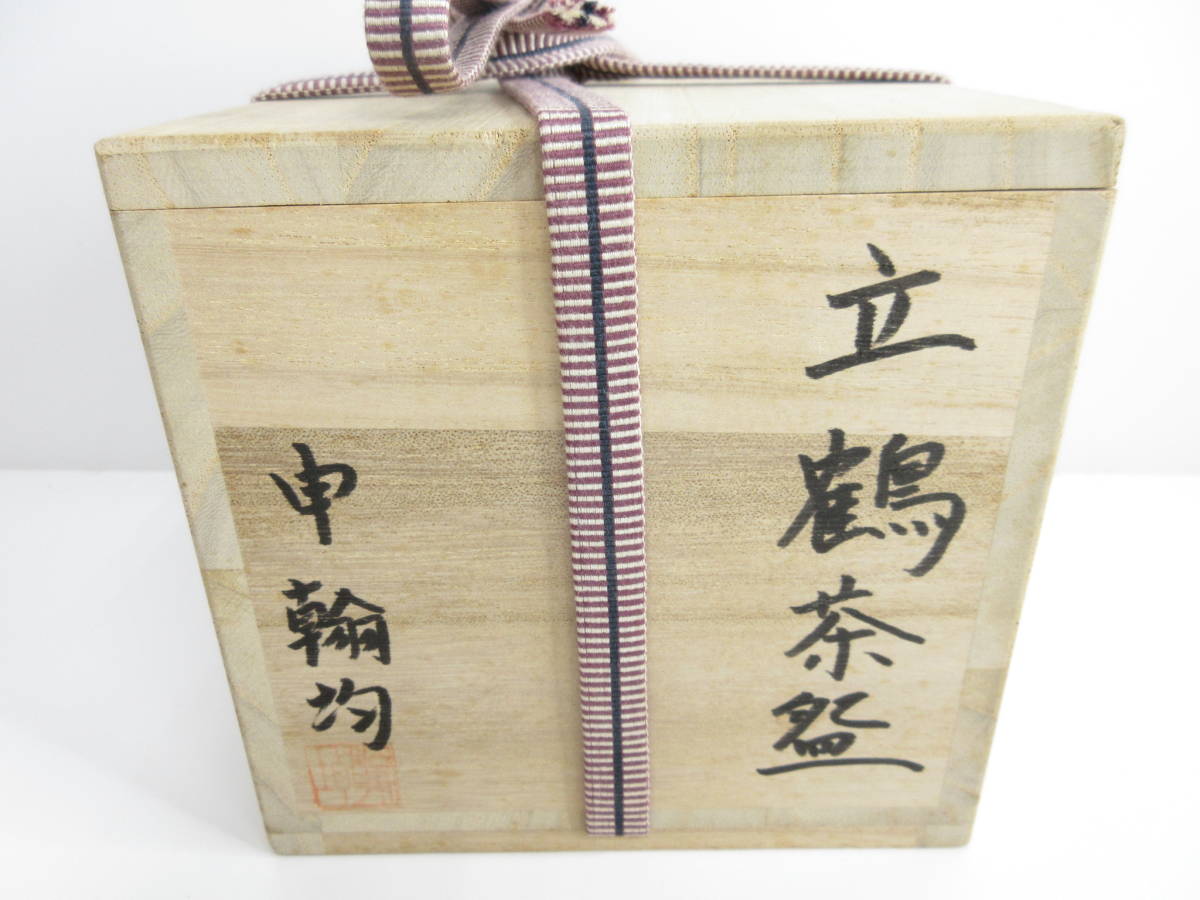 立鶴茶盌
申翰均